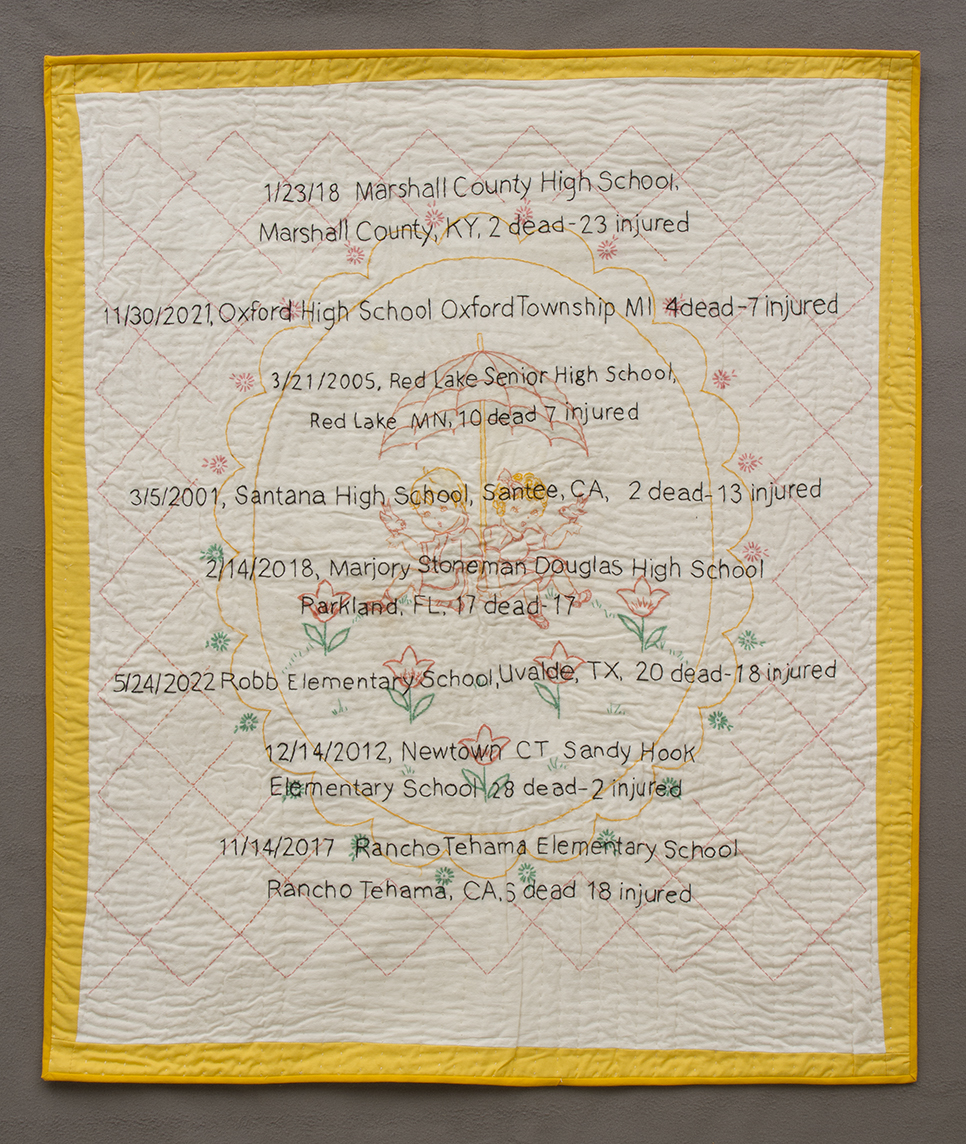 1/23/18 Marshall County High School,
Marshall County, KY, 2 dead-23 injured
11/30/2021, Oxford High School Oxford Township MI 4 dead-7 injured
3/21/2005, Red Lake Senior High School,
Red Lake MN, 10 dead 7 injured
3/5/2001, Santana High School, Santee, CA, 2 dead-13 injured
2/14/2018, Marjory Stoneman Douglas High School
Parkland, FL, 17 dead-17
5/24/2022 Robb Elementary School, Uvalde, TX, 20 dead-18 injured
12/14/2012, Newtown CT Sandy Hook
Elementary School 28 dead-2 injured
11/14/2017 Rancho Tehama Elementary School
Rancho Tehama, CA, 6 dead 18 injured